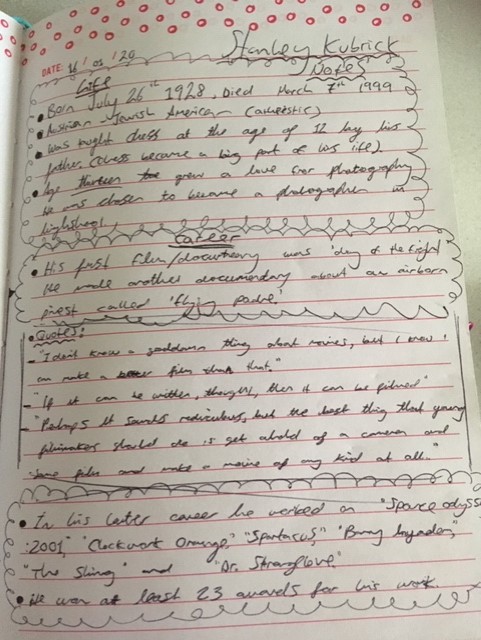 Stanley Kubrick
DATE: 16 / 01 / 20
Notes
Life
• Born July 26th 1928, Died March 7th 1999
• Austrian-Jewish American (Atheistic)
• Was taught chess at the age of 12 by his
father (chess became a big part of his life).
• Age thirteen grew a love for photography
He was chosen to become a photographer in
highshcool
Career
• His first film/documentary was 'day of the fight'
He made another documentary about an airborn
priest called 'flying padre'
• Quotes:
- "I don't know a goddamn thing about movies, but I know I
can make a better film than that."
- "If it can be written, thought, then it can be filmed"
- "Perhaps it sounds rediculous, but the best thing that young
filmmakers should do is get ahold of a camera and
some film and make a movie of any kind at all."
• In his later career he worked on "Space odyssey
:2001," "Clockwork Orange," "Spartacus," "Barry Lyndon,"
"The Shining" and "Dr. Strangelove."
• He won at least 23 awards for his work.